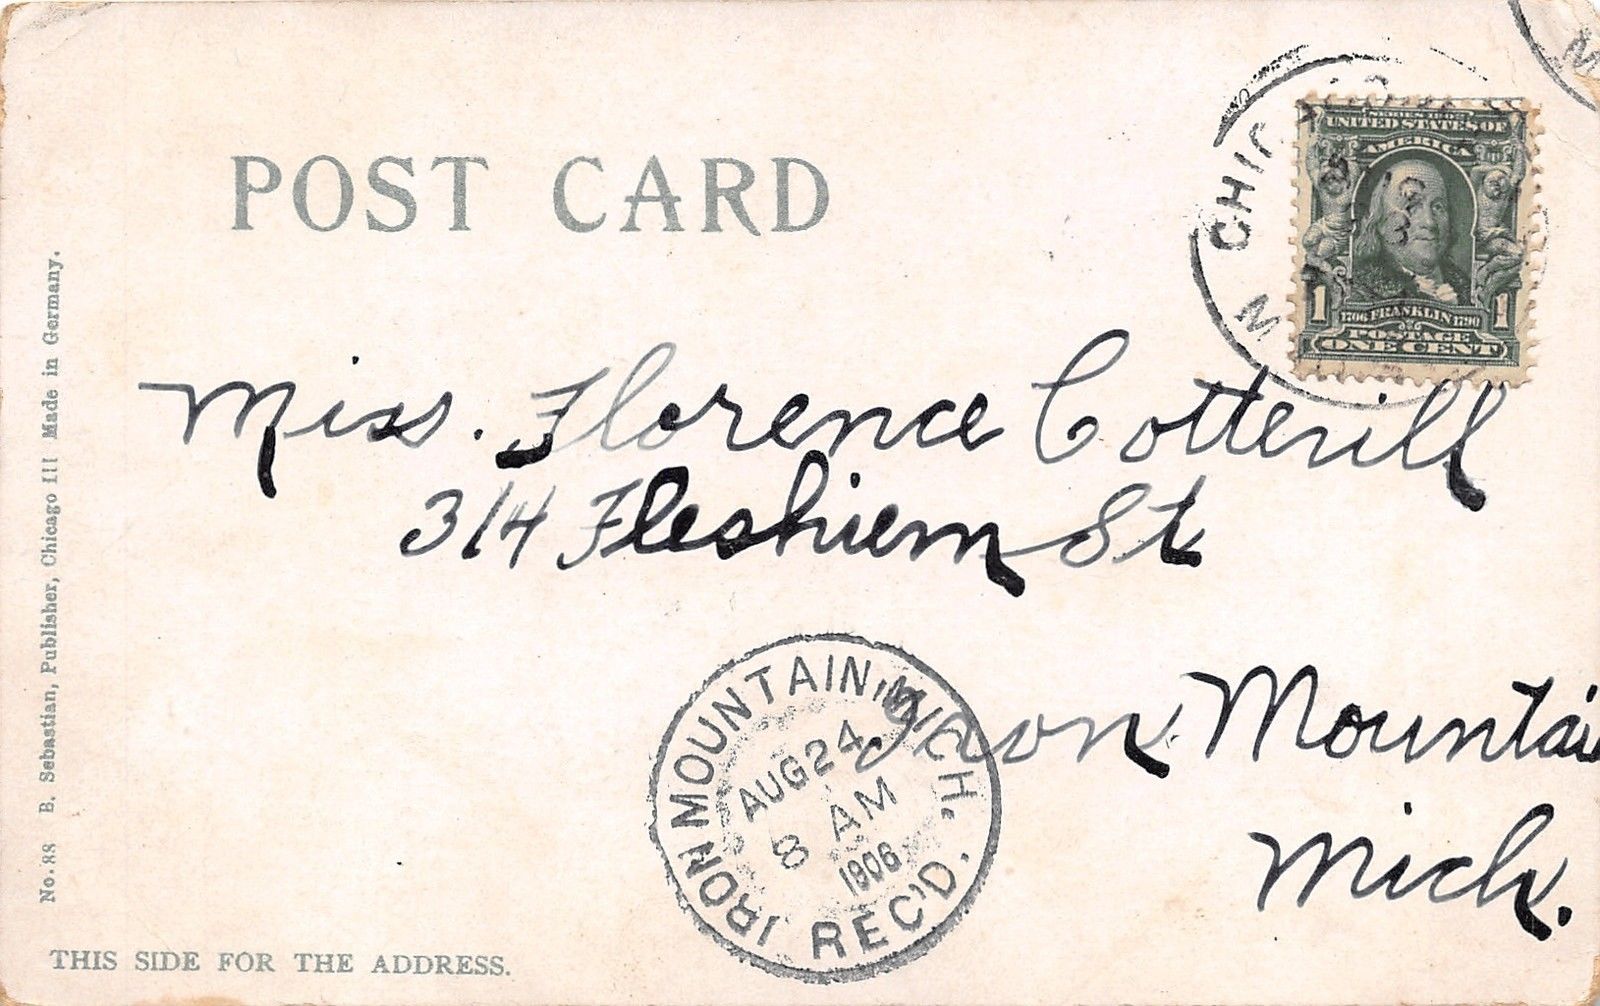 POST CARD
SERIES 1902
UNITED STATES OF
AMERICA
1 1
1706 FRANKLIN 1790
POSTAGE
ONE CENT
Miss. Florence Cotterill
314 Fleshiem St
Iron Mountain
Mich.
IRON MOUNTAIN, MICH.
AUG 24
8 AM
1906
REC'D.
No. 88 B. Sebastian, Publisher, Chicago Ill Made in Germany.
THIS SIDE FOR THE ADDRESS.